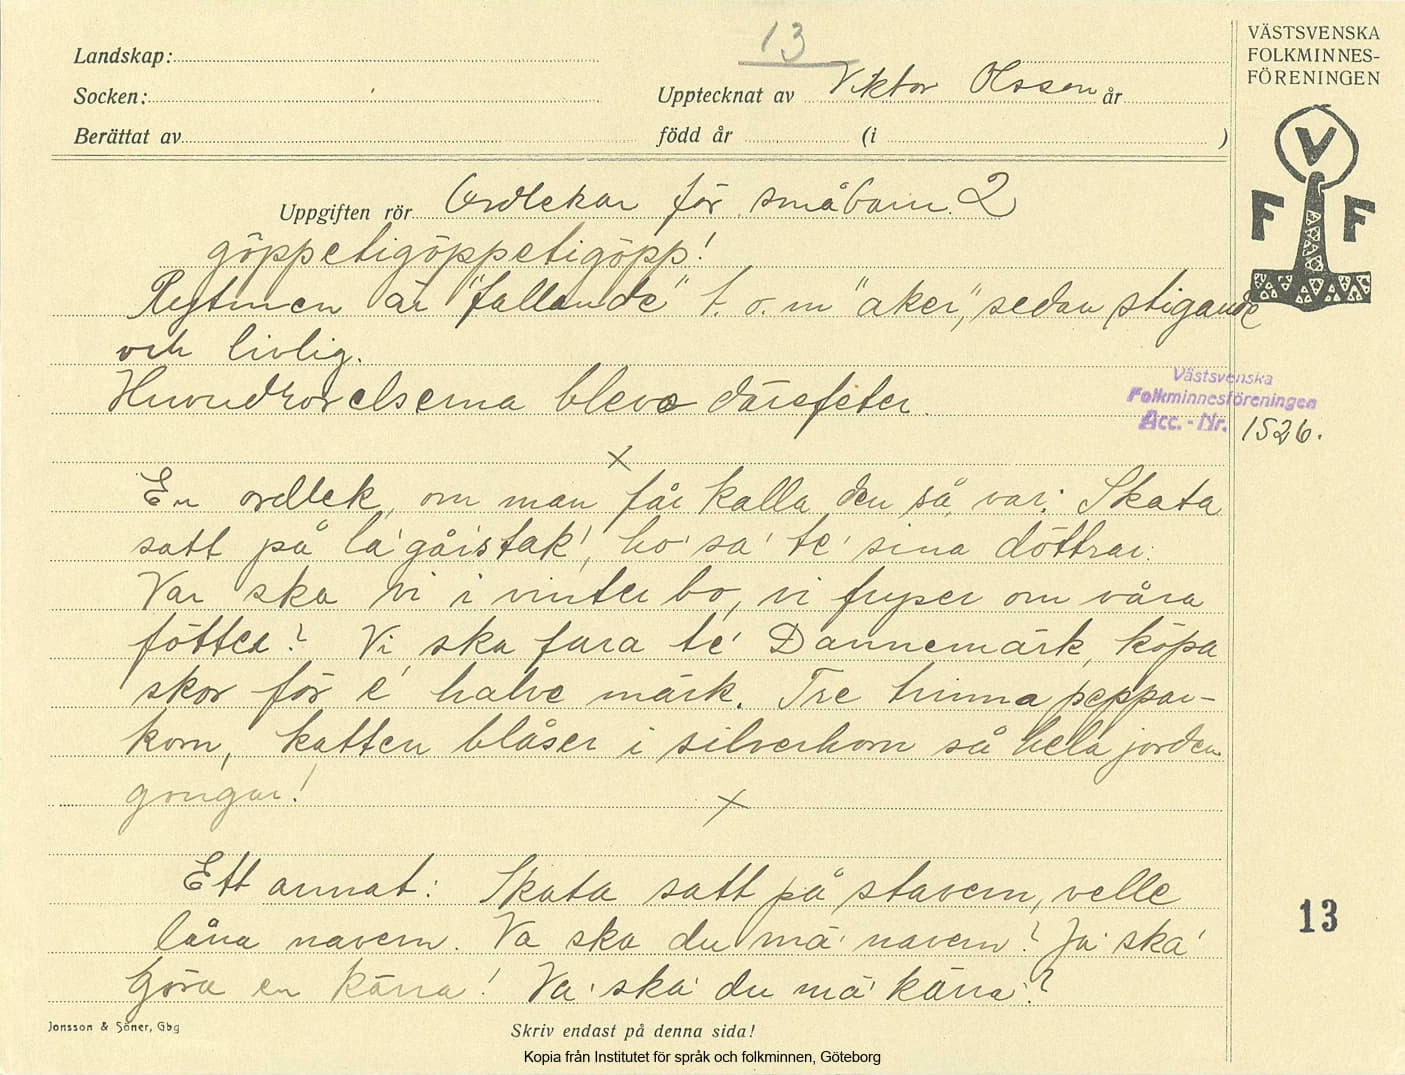 13
VÄSTSVENSKA
FOLKMINNES-
FÖRENINGEN
Landskap:
Socken:
Upptecknat av Viktor Olsson år
Berättat av
född år (i )
V
F F
Uppgiften rör Ordlekar för småbarn. 2
göppetigöppetigöpp!
Rytmen är "fallande" t. o. m "aker", sedan stigande
och livlig.
Huvudrörelserna bleve därefeter.
Västsvenska
Folkminnesföreningen
Acc. - Nr. 1526.
x
En ordlek, om man får kalla den så, var: Skata
satt på la'gåistak', ho' sa' te' sina döttrar:
Var ska vi i vinter bo, vi fryser om våra
fötter? Vi ska fara te' Dannemärk, köpa
skor för e' halve märk. Tre trinna peppar-
korn, katten blåser i silverhorn så hela jorden
gongar!
x
Ett annat: Skata satt på stavern, velle
låna navern. Va ska du mä' navern? Ja' ska'
göra en kärra! Va' ska' du mä' kärra?
13
Jonsson & Söner, Gbg
Skriv endast på denna sida!
Kopia från Institutet för språk och folkminnen, Göteborg